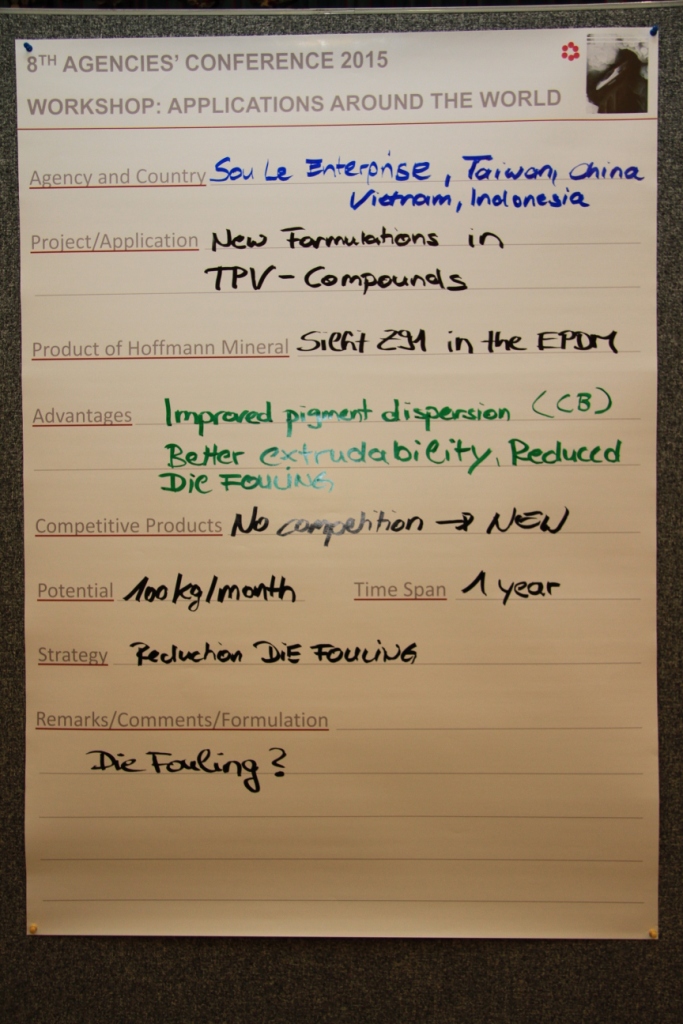 8TH AGENCIES' CONFERENCE 2015
WORKSHOP: APPLICATIONS AROUND THE WORLD
Agency and Country Sou Le Enterprise, Taiwan, China
Vietnam, Indonesia
Project/Application New Formulations in
TPV-Compounds
Product of Hoffmann Mineral Sillit Z91 in the EPDM
Advantages Improved pigment dispersion (CB)
Better extrudability, Reduced
Die FOULING
Competitive Products No competition → NEW
Potential 100kg/month Time Span 1 year
Strategy Reduction DIE FOULING
Remarks/Comments/Formulation
Die Fouling?